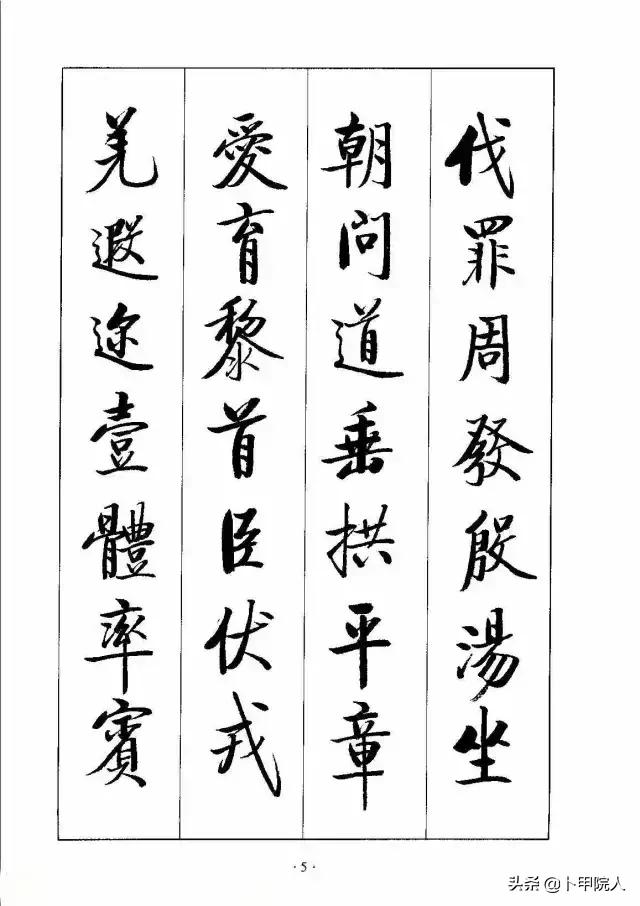 伐罪周發殷湯坐
朝問道垂拱平章
愛育黎首臣伏戎
羌遐途壹體率賓
·5·
头条@卜甲院人